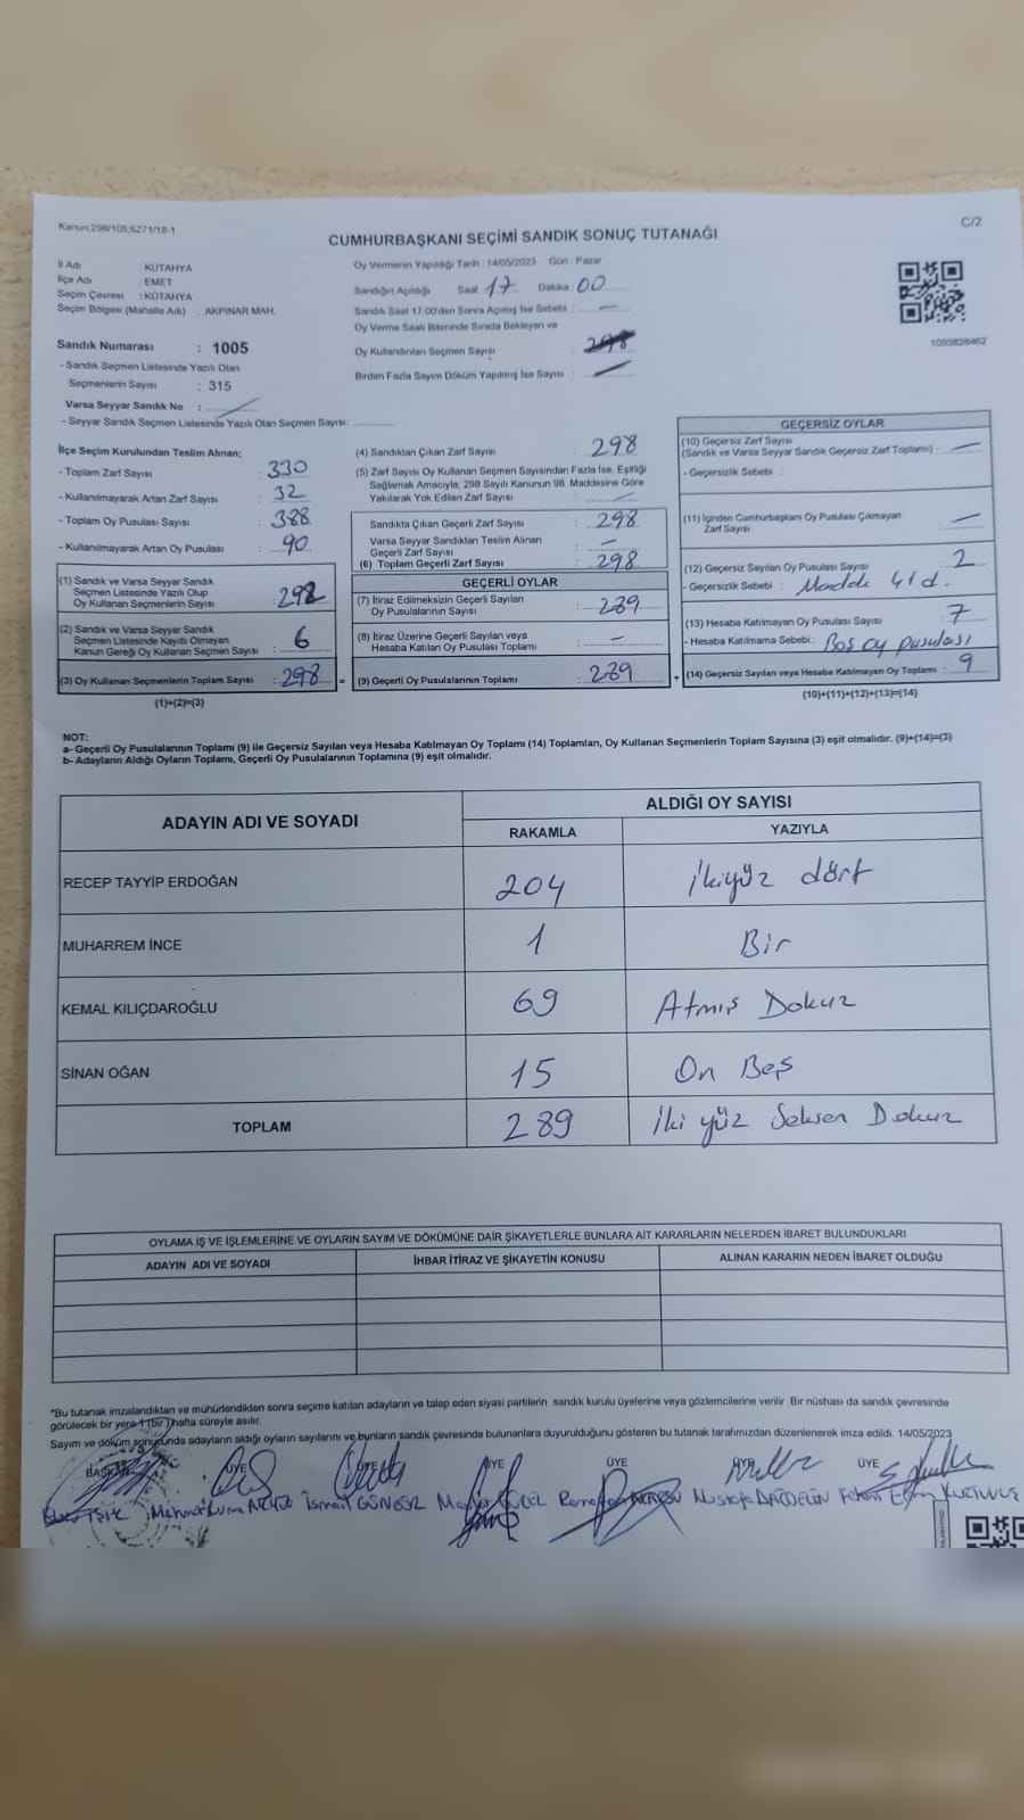 Kanun:298/105,6271/18-1
C/2
CUMHURBAŞKANI SEÇİMİ SANDIK SONUÇ TUTANAĞI
İl Adı : KÜTAHYA
İlçe Adı : EMET
Seçim Çevresi : KÜTAHYA
Seçim Bölgesi (Mahalle Adı) : AKPINAR MAH.
Sandık Numarası : 1005
- Sandık Seçmen Listesinde Yazılı Olan
Seçmenlerin Sayısı : 315
Varsa Seyyar Sandık No :
- Seyyar Sandık Seçmen Listesinde Yazılı Olan Seçmen Sayısı:
Oy Vermenin Yapıldığı Tarih : 14/05/2023 Gün : Pazar
Sandığın Açıldığı Saat : 17 Dakika : 00
Sandık Saat 17.00'den Sonra Açılmış İse Sebebi : —
Oy Verme Saati Bitiminde Sırada Bekleyen ve
Oy Kullandırılan Seçmen Sayısı :
Birden Fazla Sayım Döküm Yapılmış İse Sayısı :
İlçe Seçim Kurulundan Teslim Alınan;
- Toplam Zarf Sayısı : 330
- Kullanılmayarak Artan Zarf Sayısı : 32
- Toplam Oy Pusulası Sayısı : 388
- Kullanılmayarak Artan Oy Pusulası : 90
(1) Sandık ve Varsa Seyyar Sandık
Seçmen Listesinde Yazılı Olup
Oy Kullanan Seçmenlerin Sayısı : 292
(2) Sandık ve Varsa Seyyar Sandık
Seçmen Listesinde Kayıtlı Olmayan
Kanun Gereği Oy Kullanan Seçmen Sayısı : 6
(3) Oy Kullanan Seçmenlerin Toplam Sayısı : 298
(1)+(2)=(3)
(4) Sandıktan Çıkan Zarf Sayısı : 298
(5) Zarf Sayısı Oy Kullanan Seçmen Sayısından Fazla İse, Eşitliği
Sağlamak Amacıyla, 298 Sayılı Kanunun 98. Maddesine Göre
Yakılarak Yok Edilen Zarf Sayısı :
Sandıkta Çıkan Geçerli Zarf Sayısı : 298
Varsa Seyyar Sandıktan Teslim Alınan
Geçerli Zarf Sayısı : —
(6) Toplam Geçerli Zarf Sayısı : 298
GEÇERLİ OYLAR
(7) İtiraz Edilmeksizin Geçerli Sayılan
Oy Pusulalarının Sayısı : 289
(8) İtiraz Üzerine Geçerli Sayılan veya
Hesaba Katılan Oy Pusulası Toplamı : —
= (9) Geçerli Oy Pusulalarının Toplamı : 289
GEÇERSİZ OYLAR
(10) Geçersiz Zarf Sayısı
(Sandık ve Varsa Seyyar Sandık Geçersiz Zarf Toplamı) : —
- Geçersizlik Sebebi :
(11) İçinden Cumhurbaşkanı Oy Pusulası Çıkmayan
Zarf Sayısı : —
(12) Geçersiz Sayılan Oy Pusulası Sayısı : 2
- Geçersizlik Sebebi : Madde 4/d.
(13) Hesaba Katılmayan Oy Pusulası Sayısı : 7
- Hesaba Katılmama Sebebi: Boş oy pusulası
+ (14) Geçersiz Sayılan veya Hesaba Katılmayan Oy Toplamı : 9
(10)+(11)+(12)+(13)=(14)
NOT:
a- Geçerli Oy Pusulalarının Toplamı (9) ile Geçersiz Sayılan veya Hesaba Katılmayan Oy Toplamı (14) Toplamları, Oy Kullanan Seçmenlerin Toplam Sayısına (3) eşit olmalıdır. (9)+(14)=(3)
b- Adayların Aldığı Oyların Toplamı, Geçerli Oy Pusulalarının Toplamına (9) eşit olmalıdır.
ADAYIN ADI VE SOYADI
ALDIĞI OY SAYISI
RAKAMLA YAZIYLA
RECEP TAYYİP ERDOĞAN 204 İkiyüz dört
MUHARREM İNCE 1 Bir
KEMAL KILIÇDAROĞLU 69 Atmış Dokuz
SİNAN OĞAN 15 On Beş
TOPLAM 289 İki yüz Seksen Dokuz
OYLAMA İŞ VE İŞLEMLERİNE VE OYLARIN SAYIM VE DÖKÜMÜNE DAİR ŞİKAYETLERLE BUNLARA AİT KARARLARIN NELERDEN İBARET BULUNDUKLARI
ADAYIN ADI VE SOYADI İHBAR İTİRAZ VE ŞİKAYETİN KONUSU ALINAN KARARIN NEDEN İBARET OLDUĞU
"Bu tutanak imzalandıktan ve mühürlendikten sonra seçime katılan adayların ve talep eden siyasi partilerin sandık kurulu üyelerine veya gözlemcilerine verilir. Bir nüshası da sandık çevresinde
görülecek bir yere 1 (bir) hafta süreyle asılır.
Sayım ve döküm sonucunda adayların aldığı oyların sayılarını ve bunların sandık çevresinde bulunanlara duyurulduğunu gösteren bu tutanak tarafımızdan düzenlenerek imza edildi. 14/05/2023
BAŞKAN ÜYE ÜYE ÜYE ÜYE ÜYE ÜYE
İsmail GÜNGÖR